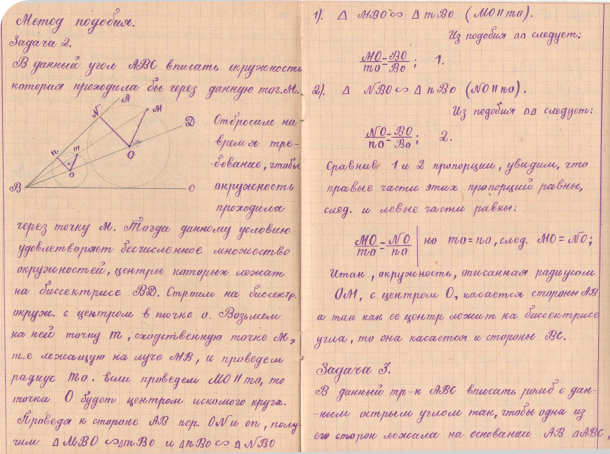 Метод подобия.
Задача 2.
В данный угол ABC вписать окружность
которая проходила бы через данную точ. M.
A
N
M
D
n
m
O
o
B
C
Отбросим на
время тре-
бование, чтобы
окружность
проходила
через точку M. Тогда данному условию
удовлетворяет бесчисленное множество
окружностей, центры которых лежат
на биссектрисе BD. Строим на биссектр.
окруж. с центром в точке o. Возьмем
на ней точку m, сходственную точке M,
т.е лежащую на луче MB, и проведем
радиус mo. если проведем MO || mo, то
точка O будет центром искомого круга.
Проведя к стороне AB пер. ON и on, полу-
чим △ MBO ∽ △ mBo и △ nBo ∽ △ NBO
1). △ MBO ∽ △ mBo (MO || mo).
Из подобия △△ следует:
MO/mo = BO/Bo; 1.
2). △ NBO ∽ △ nBo (NO || no).
Из подобия △△ следует:
NO/no = BO/Bo; 2.
Сравнив 1 и 2 пропорции, увидим, что
правые части этих пропорций равны,
след. и левые части равны:
MO/mo = NO/no | но mo = no, след. MO = NO;
Итак, окружность, описанная радиусом
OM, с центром O, касается стороны AB
а так как ее центр лежит на биссектрисе
угла, то она касается и стороны BC.
Задача 3.
В данный тр-к ABC вписать ромб с дан-
-ным острым углом так, чтобы одна из
его сторон лежала на основании AB △ABC,